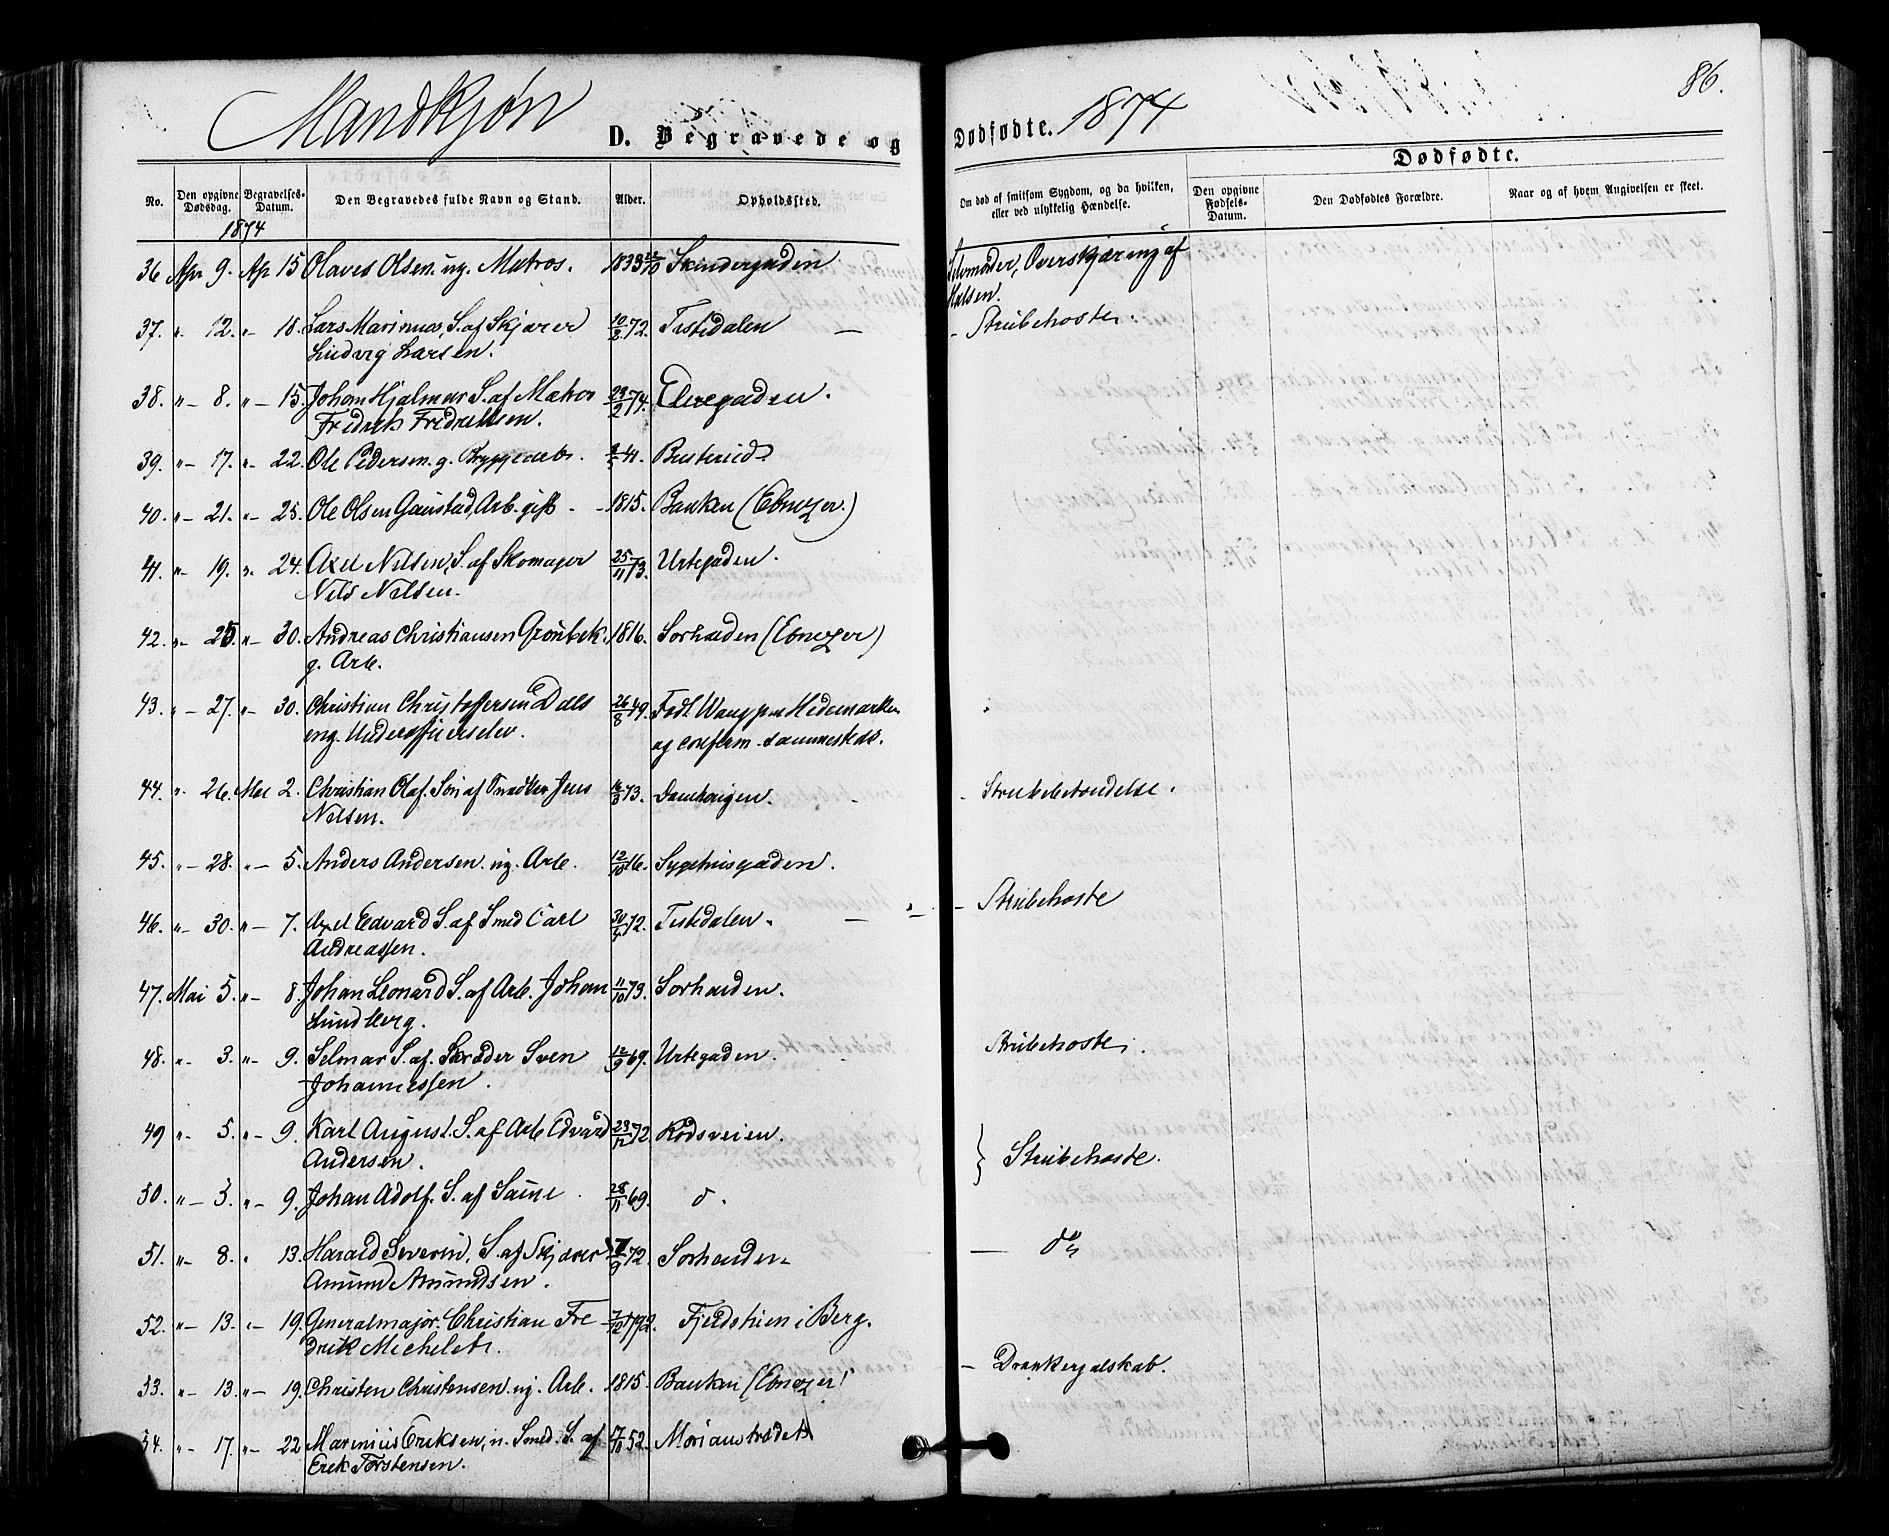 Mandkjøn D. Begravede og Dødfødte. 1874 86.
Dødfødte.
No. Den opgivne Dødsdag. Begravelses-Datum. Den Begravedes fulde Navn og Stand. Alder. Opholdssted. Om død af smitsom Sygdom, og da hvilken, eller ved ulykkelig Hændelse. Den opgivne Fødsels-Datum. Den Dødfødtes Forældre. Naar og af hvem Angivelsen er skeet.
1874
36 Apr 9. Ap 15 Olaves Olsen ug. Matros. 1833 22/10 Skindergaden Selvmorder, Overskjæring af
Halsen.
37. " 12. " 18. Lars Marinius, S. af Skjærer 10/2 72. Tistedalen — Strubehoste.
Ludvig Larsen.
38. " 8. " 15. Johan Hjalmar S. af Matros 29/2 74. Elvegaden.
Fredrik Fredriksen.
39. " 17. " 22. Ole Pedersen g. Bryggearb. 41. Busterud
40. " 21. " 25. Ole Olsen Gaustad, Arb. gift 1815. Banken (Ebnezer.)
41. " 19. " 24. Axel Nilsen, S. af Skomager 25/11 73. Urtegaden.
Nils Nilsen.
42. " 25 " 30. Andreas Christiansen Grønbek. 1816. Sorhauden (Ebnezer)
g. Arb.
43. " 27. " 30. Christian Christoffersen Dæls 26/8 49. Født Wang p. Hedemarken
ung. Underofficerselev. og confirm. sammesteds.
44. " 26. Mai 2. Christian Olaf. Søn af Snedker Jens 73. Damhaugen. — Strubebetændelse.
Nilsen.
45. " 28. " 5. Anders Andersen. ug. Arb. 12/10 16. Sygehusgaden.
46. " 30. " 7. Axel Edvard S. af Smed Carl 72. Tistedalen. — Strubehoste
Andreassen.
47. Mai 5. " 8. Johan Leonard S. af Arb. Johan 11/10 73. Sorhauden.
Lundberg.
48. " 3. " 9. Selmar S. af Skræder Sven 12/9 69. Urtegaden. Strubehoste.
Johannessen.
49 " 5. " 9. Karl August. S. af Arb Edvard 23/12 72. Rødsveien. } Strubehoste.
Andersen.
50. " 5. " 9. Johan Adolf. S. af Samme. 28/11 69. d.
51. " 8. " 13. Harald Severin, S. af Skjærer 7/9 72. Sorhauden. — do
Amund Amundsen.
52. " 13. " 19. Generalmajor. Christian Fre 1792. Fjeldstuen i Berg.
drik Michelet.
53. " 13. " 19. Christen Christensen. ug. Arb. 1815. Banken (Ebnezer) — Drankergalskab.
54. " 17. " 22 Marinius Eriksen, u. Smed. S. af 17/10 52. Morianstrædet
Erik Torstensen.